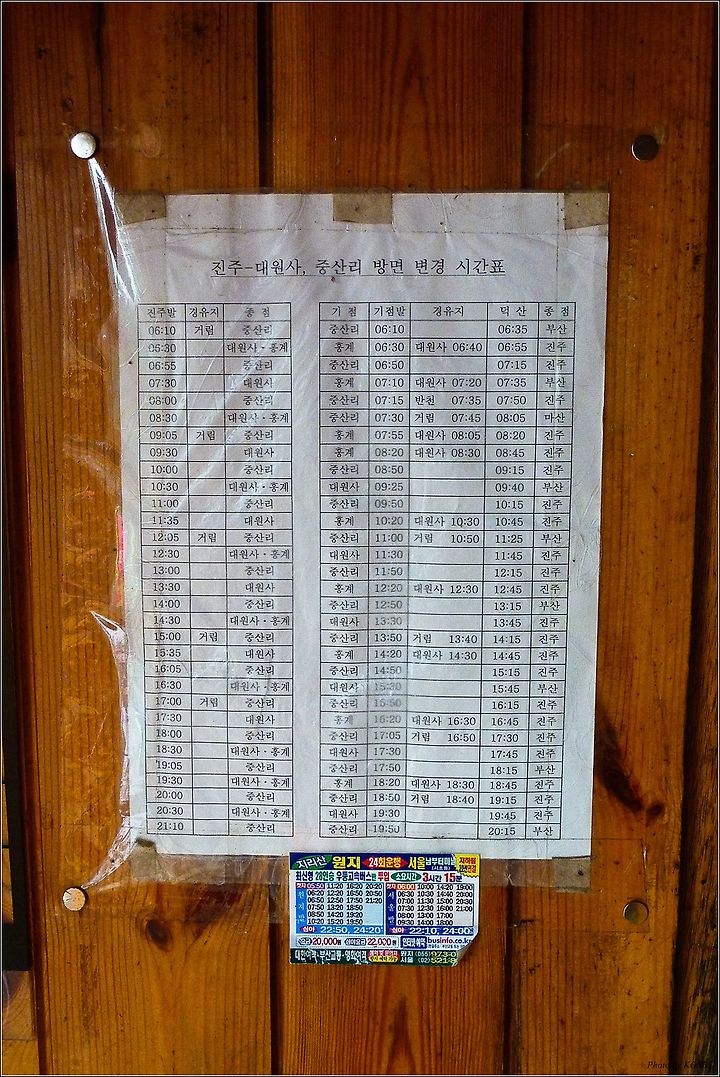 진주-대원사, 중산리 방면 변경 시간표
진주발 경유지 종 점
06:10 거림 중산리
06:30 대원사·홍계
06:55 중산리
07:30 대원사
08:00 중산리
08:30 대원사·홍계
09:05 거림 중산리
09:30 대원사
10:00 중산리
10:30 대원사·홍계
11:00 중산리
11:35 대원사
12:05 거림 중산리
12:30 대원사·홍계
13:00 중산리
13:30 대원사
14:00 중산리
14:30 대원사·홍계
15:00 거림 중산리
15:35 대원사
16:05 중산리
16:30 대원사·홍계
17:00 거림 중산리
17:30 대원사
18:00 중산리
18:30 대원사·홍계
19:05 중산리
19:30 대원사·홍계
20:00 중산리
20:30 대원사·홍계
21:10 중산리
기 점 기점발 경유지 덕 산 종 점
중산리 06:10 06:35 부산
홍계 06:30 대원사 06:40 06:55 진주
중산리 06:50 07:15 진주
홍계 07:10 대원사 07:20 07:35 부산
중산리 07:15 반천 07:35 07:50 진주
중산리 07:30 거림 07:45 08:05 마산
홍계 07:55 대원사 08:05 08:20 진주
홍계 08:20 대원사 08:30 08:45 진주
중산리 08:50 09:15 진주
대원사 09:25 09:40 부산
중산리 09:50 10:15 진주
홍계 10:20 대원사 10:30 10:45 진주
중산리 11:00 거림 10:50 11:25 부산
대원사 11:30 11:45 진주
중산리 11:50 12:15 진주
홍계 12:20 대원사 12:30 12:45 진주
중산리 12:50 13:15 부산
대원사 13:30 13:45 진주
중산리 13:50 거림 13:40 14:15 진주
홍계 14:20 대원사 14:30 14:45 진주
중산리 14:50 15:15 진주
대원사 15:30 15:45 부산
중산리 15:50 16:15 진주
홍계 16:20 대원사 16:30 16:45 진주
중산리 17:05 거림 16:50 17:30 진주
대원사 17:30 17:45 진주
중산리 17:50 18:15 부산
홍계 18:20 대원사 18:30 18:45 진주
중산리 18:50 거림 18:40 19:15 진주
대원사 19:30 19:45 진주
중산리 19:50 20:15 부산
지리산 원지 24회운행 서울남부터미널
최신형 28인승 우등고속버스 투입 소요시간 3시간 15분
심야 22:50, 24:20
심야 22:10, 24:00
20,000원 22,000원 businfo.co.kr
대한여객·부산교통·영화여객 원지 (055)
서울 (02)